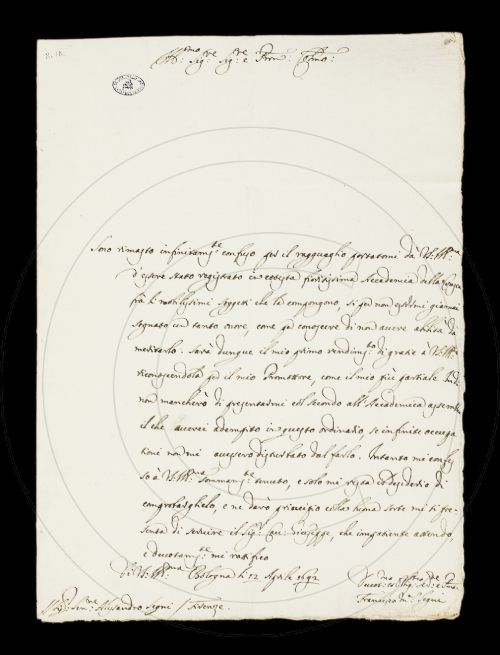 Ill:mo Sig:re Sig:re e Pron:
Sono rimasto infinitam:te confuso per il ragguaglio portatomi da V:S:Ill:ma
d'essere stato registrato in cotesta fioritissima Accademia della
frà li nobilissimi soggetti che la compongono, sì per non essermi giammai
sognato un tanto onore, come per conoscere di non avere abilità da
meritarlo. Sarà dunque il mio primo rendim:to di gratie à V:S:Ill:ma
riconoscendola per il mio Promottore, come il mio più partiale.
non mancherò di presentarmi col secondo all'Accademia
il che averei adempito in questo ordinario, se infinite occupa
tioni non mi avessero disturbato dal farlo. Intanto mi confes
so à V:S:Ill:ma sommam:te tenuto, e solo mi resta il desiderio di
comprovarglielo, e ne darò principio colla buona sorte mi si pre
senta di servire il Sig: Cav: Giuseppe, che impatiente attendo,
e devotam:te mi ratifico
Di V:S:Ill:ma Bologna li 12 Aprile 1692
Francesco M:a Segni
Sig: Sen:re Alessandro Segni Firenze.